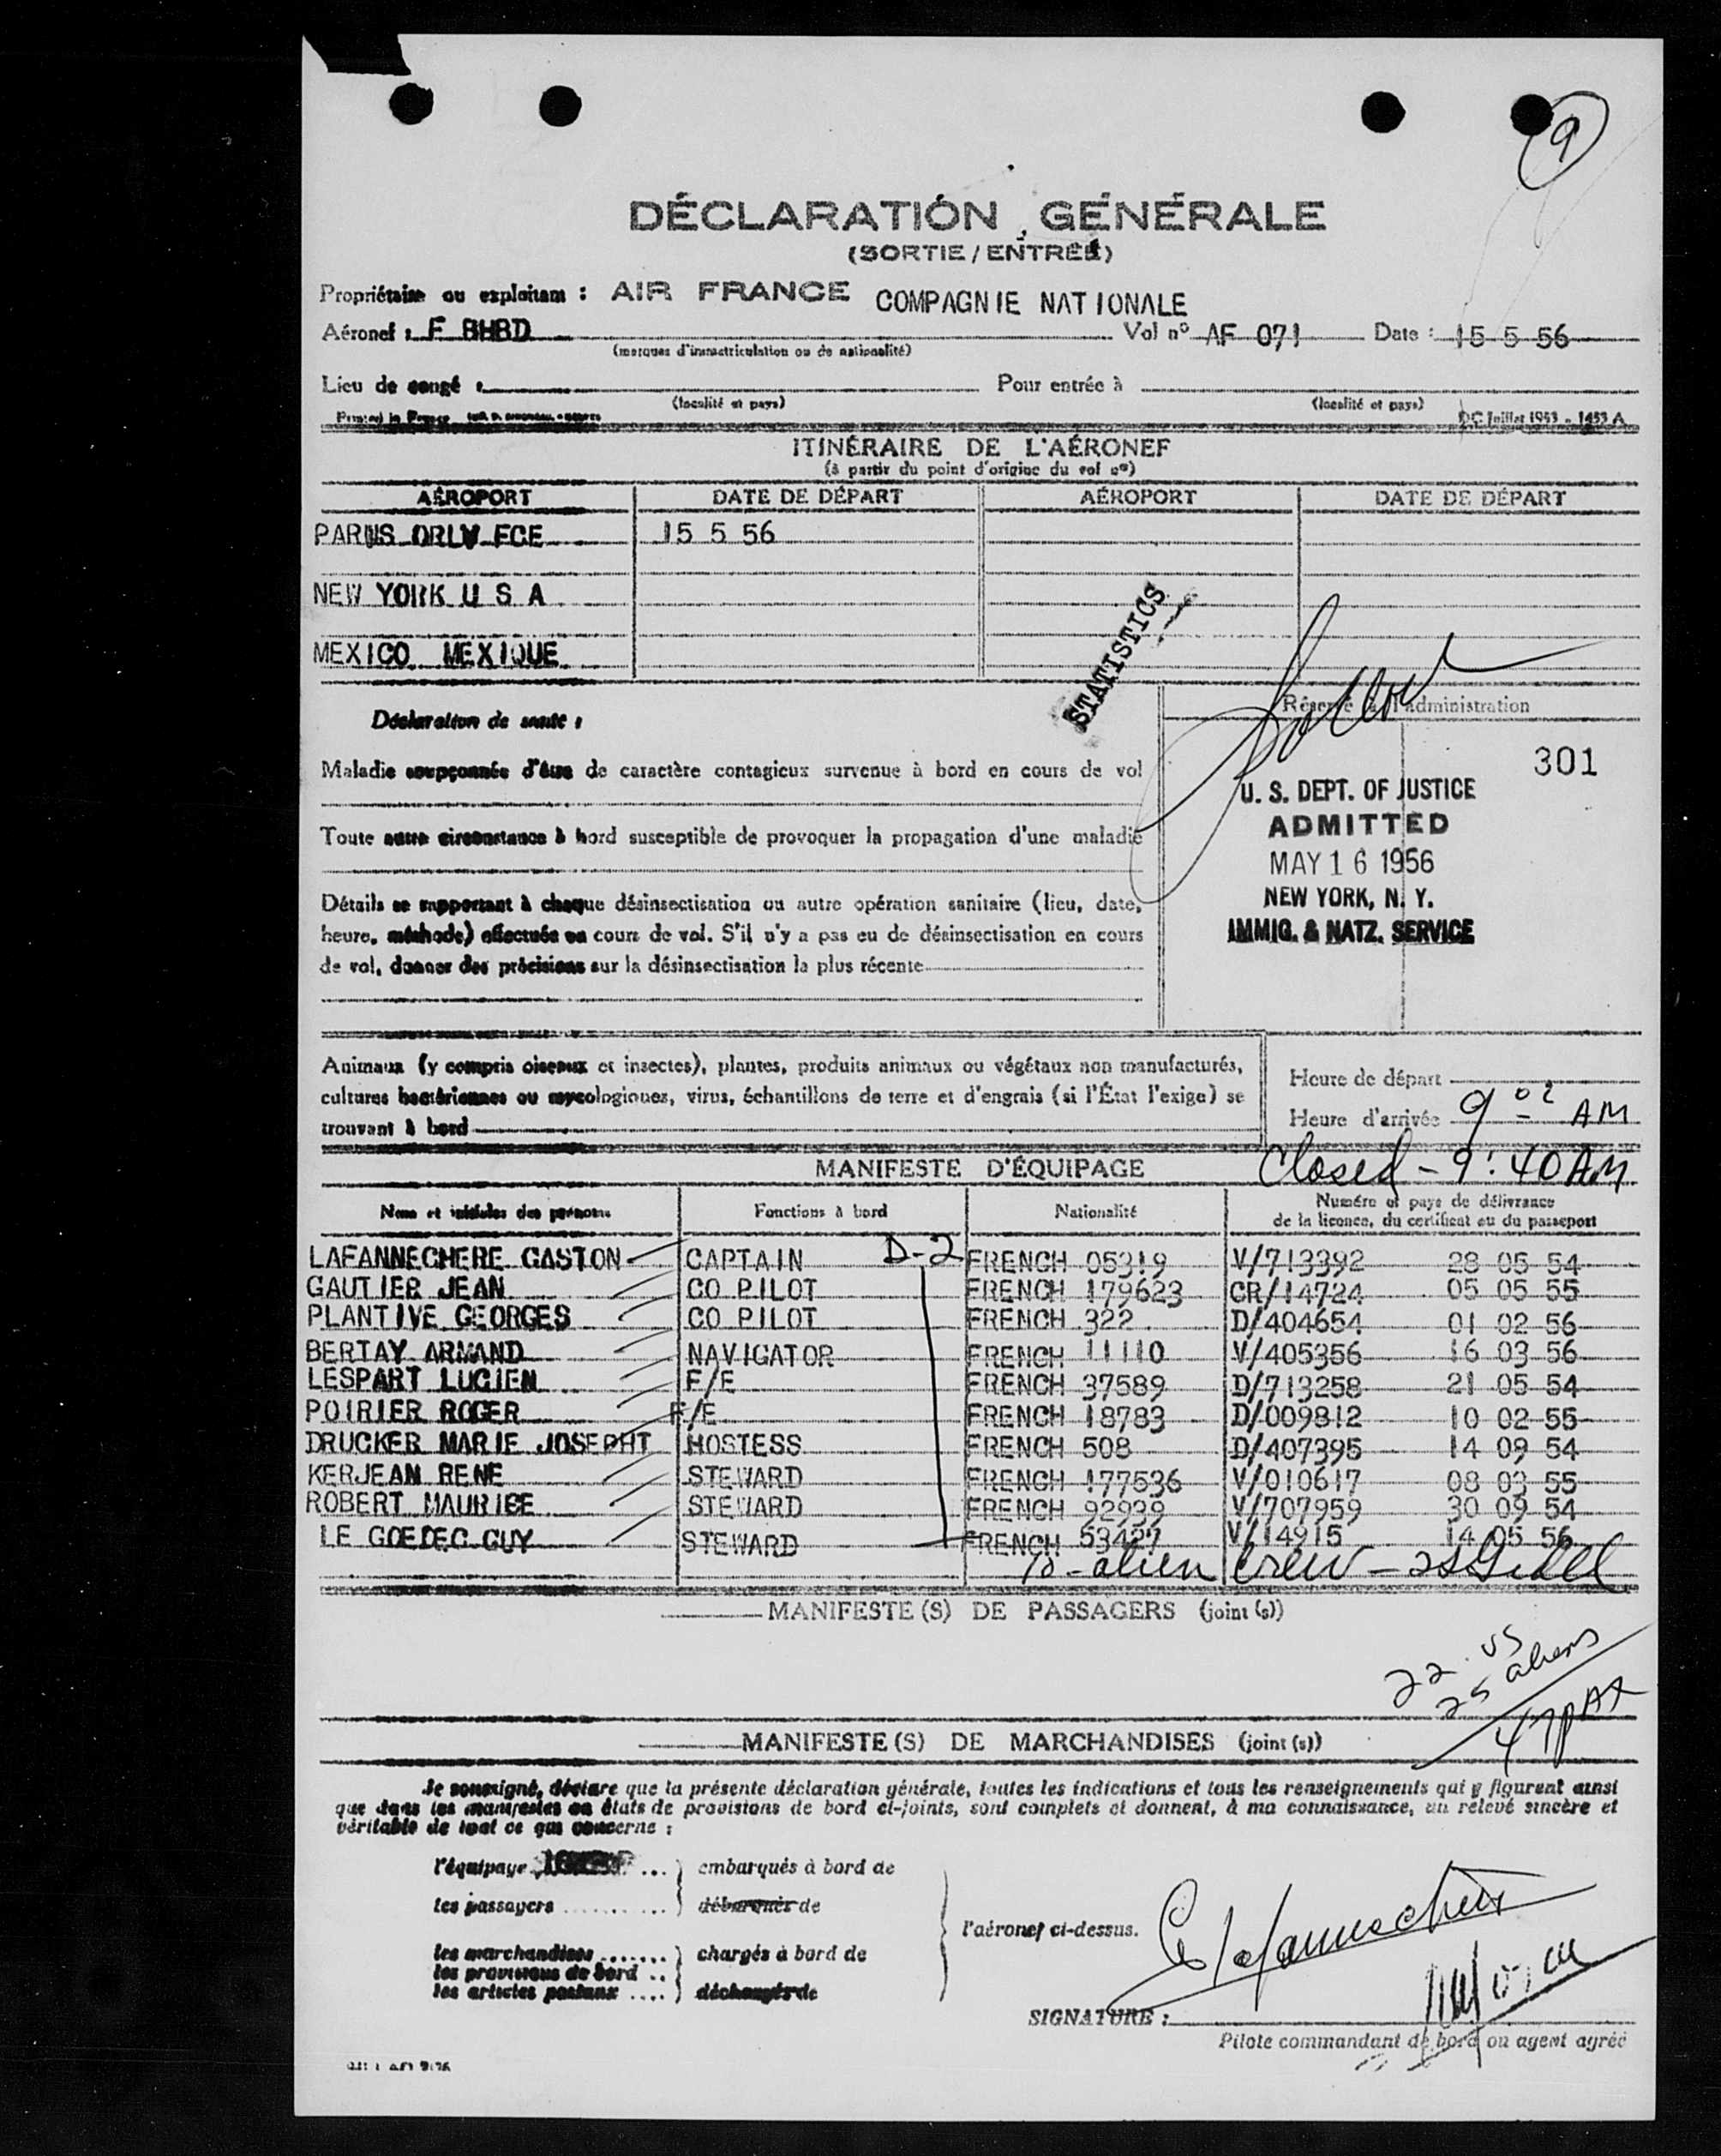 9
DÉCLARATION GÉNÉRALE
(SORTIE / ENTRÉE)
Propriétaire ou exploitant : AIR FRANCE COMPAGNIE NATIONALE
Aéronef : F BHBD Vol n° AF 071 Date : 15 5 56
(marques d'immatriculation ou de nationalité)
Lieu de congé : Pour entrée à
(localité et pays) (localité et pays)
Printed in France DC Juillet 1953 - 1453 A
ITINÉRAIRE DE L'AÉRONEF
(à partir du point d'origine du vol n°)
AÉROPORT DATE DE DÉPART AÉROPORT DATE DE DÉPART
PARIS ORLY FCE 15 5 56
NEW YORK U S A
MEXICO MEXIQUE
STATISTICS
Déclaration de santé :
Réservé à l'administration
301
Maladie soupçonnée d'être de caractère contagieux survenue à bord en cours de vol
U. S. DEPT. OF JUSTICE
ADMITTED
MAY 16 1956
NEW YORK, N. Y.
IMMIG. & NATZ. SERVICE
Toute autre circonstance à bord susceptible de provoquer la propagation d'une maladie
Détails se rapportant à chaque désinsectisation ou autre opération sanitaire (lieu, date,
heure, méthode) effectuée en cours de vol. S'il n'y a pas eu de désinsectisation en cours
de vol, donner des précisions sur la désinsectisation la plus récente
Animaux (y compris oiseaux et insectes), plantes, produits animaux ou végétaux non manufacturés,
cultures bactériennes ou mycologiques, virus, échantillons de terre et d'engrais (si l'État l'exige) se
trouvant à bord
Heure de départ
Heure d'arrivée 9 02 AM
MANIFESTE D'ÉQUIPAGE Closed - 9:40 AM
Noms et initiales des prénoms Fonctions à bord Nationalité Numéro et pays de délivrance
de la licence, du certificat ou du passeport
LAFANNECHERE GASTON CAPTAIN D-2 FRENCH 05319 V/713392 28 05 54
GAUTIER JEAN CO PILOT FRENCH 179623 CR/14724 05 05 55
PLANTIVE GEORGES CO PILOT FRENCH 322 D/404654 01 02 56
BERTAY ARMAND NAVIGATOR FRENCH 11110 V/405356 16 03 56
LESPART LUCIEN F/E FRENCH 37589 D/713258 21 05 54
POIRIER ROGER F/E FRENCH 18783 D/009812 10 02 55
DRUCKER MARIE JOSEPHT HOSTESS FRENCH 508 D/407395 14 09 54
KERJEAN RENE STEWARD FRENCH 177536 V/010617 08 03 55
ROBERT MAURICE STEWARD FRENCH 92939 V/707959 30 09 54
LE GOEDEC GUY STEWARD FRENCH 53427 V/14915 14 05 56
10 - alien crew -
MANIFESTE (S) DE PASSAGERS (joint (s))
22 US
25 aliens
47 PAX
MANIFESTE (S) DE MARCHANDISES (joint (s))
Je soussigné, déclare que la présente déclaration générale, toutes les indications et tous les renseignements qui y figurent ainsi
que dans les manifestes ou états de provisions de bord ci-joints, sont complets et donnent, à ma connaissance, un relevé sincère et
véritable de tout ce qui concerne :
l'équipage embarqués à bord de
les passagers débarqués de
l'aéronef ci-dessus.
les marchandises chargés à bord de
les provisions de bord
les articles postaux déchargés de
G Lafannechere
SIGNATURE :
Pilote commandant de bord ou agent agréé